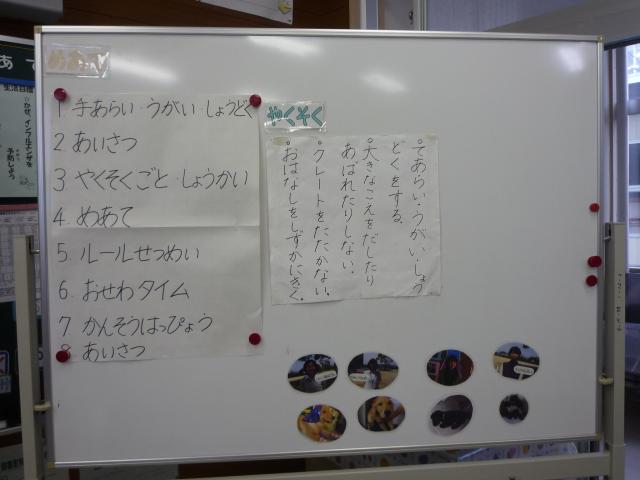 1. 手あらい・うがい・しょうどく
2 あいさつ
3 やくそくごと・しょうかい
4. めあて
5. ルールせつめい
6. おせわタイム
7 かんそうはっぴょう
8 あいさつ
やくそく
。てあらい・うがい・しょう
どくをする。
。大きなこえをだしたり
あばれたりしない。
。クレートをたたかない。
。おはなしをしずかにきく。
生活目標
かぜ、インフルエンザを
予防しよう